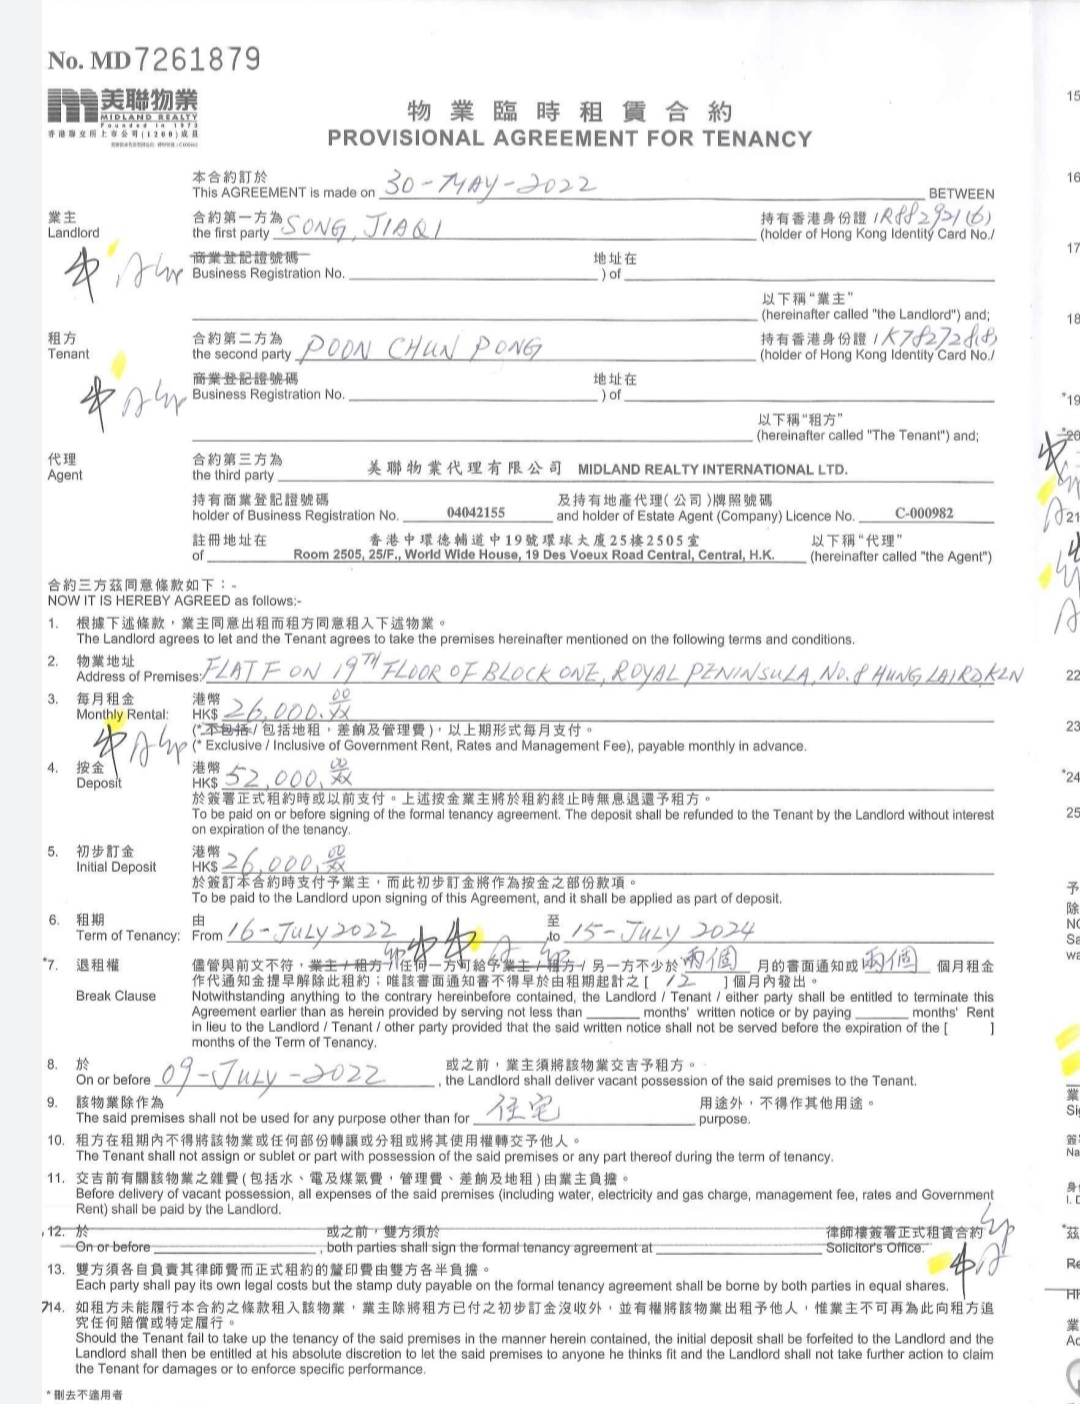 No. MD 7261879
美聯物業
MIDLAND REALTY
Founded in 1973
香港聯交所上市公司(1200)成員
物業臨時租賃合約
PROVISIONAL AGREEMENT FOR TENANCY
本合約訂於
This AGREEMENT is made on 30-MAY-2022 BETWEEN
業主 合約第一方為 持有香港身份證 / R882921(6)
Landlord the first party SONG, JIAQI (holder of Hong Kong Identity Card No./
商業登記證號碼 地址在
Business Registration No. ) of
以下稱“業主”
(hereinafter called "the Landlord") and;
租方 合約第二方為 持有香港身份證 / K782728(8)
Tenant the second party POON CHUN PONG (holder of Hong Kong Identity Card No./
商業登記證號碼 地址在
Business Registration No. ) of
以下稱“租方”
(hereinafter called "The Tenant") and;
代理 合約第三方為
Agent the third party 美聯物業代理有限公司 MIDLAND REALTY INTERNATIONAL LTD.
持有商業登記證號碼 及持有地產代理(公司)牌照號碼
holder of Business Registration No. 04042155 and holder of Estate Agent (Company) Licence No. C-000982
註冊地址在 香港中環德輔道中19號環球大廈25樓2505室 以下稱“代理”
of Room 2505, 25/F., World Wide House, 19 Des Voeux Road Central, Central, H.K. (hereinafter called "the Agent")
合約三方茲同意條款如下：-
NOW IT IS HEREBY AGREED as follows:-
1. 根據下述條款，業主同意出租而租方同意租入下述物業。
The Landlord agrees to let and the Tenant agrees to take the premises hereinafter mentioned on the following terms and conditions.
2. 物業地址
Address of Premises: FLAT F ON 19TH FLOOR OF BLOCK ONE, ROYAL PENINSULA, NO. 8 HUNG LAI RD, KLN
3. 每月租金 港幣
Monthly Rental: HK$ 26,000.00
(*不包括 / 包括地租，差餉及管理費)，以上期形式每月支付。
(* Exclusive / Inclusive of Government Rent, Rates and Management Fee), payable monthly in advance.
4. 按金 港幣
Deposit HK$ 52,000.00
於簽署正式租約時或以前支付。上述按金業主將於租約終止時無息退還予租方。
To be paid on or before signing of the formal tenancy agreement. The deposit shall be refunded to the Tenant by the Landlord without interest
on expiration of the tenancy.
5. 初步訂金 港幣
Initial Deposit HK$ 26,000.00
於簽訂本合約時支付予業主，而此初步訂金將作為按金之部份款項。
To be paid to the Landlord upon signing of this Agreement, and it shall be applied as part of deposit.
6. 租期 由 至
Term of Tenancy: From 16-JULY 2022 to 15-JULY 2024
*7. 退租權 儘管與前文不符，業主 / 租方 / 任何一方可給予業主 / 租方 / 另一方不少於 兩個 月的書面通知或 兩個 個月租金
作代通知金提早解除此租約；唯該書面通知書不得早於由租期起計之[ 12 ]個月內發出。
Break Clause Notwithstanding anything to the contrary hereinbefore contained, the Landlord / Tenant / either party shall be entitled to terminate this
Agreement earlier than as herein provided by serving not less than ______ months' written notice or by paying ______ months' Rent
in lieu to the Landlord / Tenant / other party provided that the said written notice shall not be served before the expiration of the [ ]
months of the Term of Tenancy.
8. 於 或之前，業主須將該物業交吉予租方。
On or before 09-JULY-2022 , the Landlord shall deliver vacant possession of the said premises to the Tenant.
9. 該物業除作為 用途外，不得作其他用途。
The said premises shall not be used for any purpose other than for 住宅 purpose.
10. 租方在租期內不得將該物業或任何部份轉讓或分租或將其使用權轉交予他人。
The Tenant shall not assign or sublet or part with possession of the said premises or any part thereof during the term of tenancy.
11. 交吉前有關該物業之雜費(包括水、電及煤氣費，管理費、差餉及地租)由業主負擔。
Before delivery of vacant possession, all expenses of the said premises (including water, electricity and gas charge, management fee, rates and Government
Rent) shall be paid by the Landlord.
12. 於 或之前，雙方須於 律師樓簽署正式租賃合約
On or before , both parties shall sign the formal tenancy agreement at Solicitor's Office.
13. 雙方須各自負責其律師費而正式租約的釐印費由雙方各半負擔。
Each party shall pay its own legal costs but the stamp duty payable on the formal tenancy agreement shall be borne by both parties in equal shares.
14. 如租方未能履行本合約之條款租入該物業，業主除將租方已付之初步訂金沒收外，並有權將該物業出租予他人，惟業主不可再為此向租方追
究任何賠償或特定履行。
Should the Tenant fail to take up the tenancy of the said premises in the manner herein contained, the initial deposit shall be forfeited to the Landlord and the
Landlord shall then be entitled at his absolute discretion to let the said premises to anyone he thinks fit and the Landlord shall not take further action to claim
the Tenant for damages or to enforce specific performance.
* 刪去不適用者
15
16
17
18
*19
*20
21
22
23
*24
25